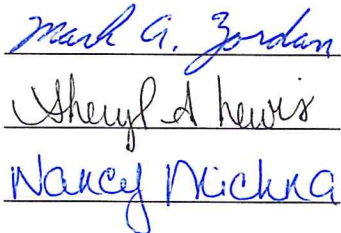 Mark A. Zordan
Sheryl A Lewis
Nancy Michna